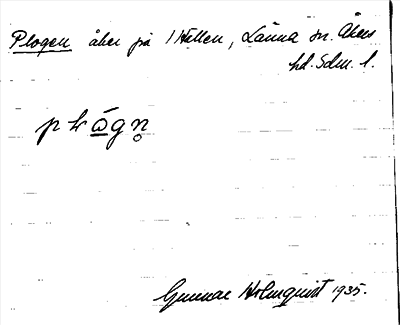 Plogen åker på Hällen, Länna sn. Åkers
hd. Sdm. l.
Gunnar Holmquist 1935.